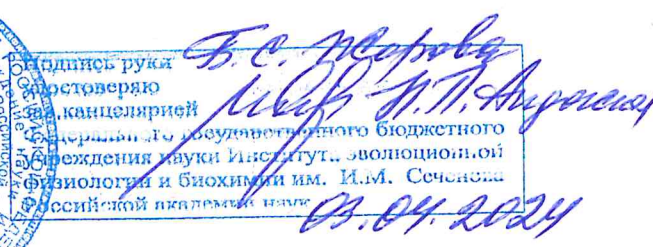 Подпись руки Б.С. Жорова
удостоверяю
зав.канцелярией Н.П.
Федерального государственного бюджетного
учреждения науки Института эволюционной
физиологии и биохимии им. И.М. Сеченова
Российской академии наук
03.04.2024